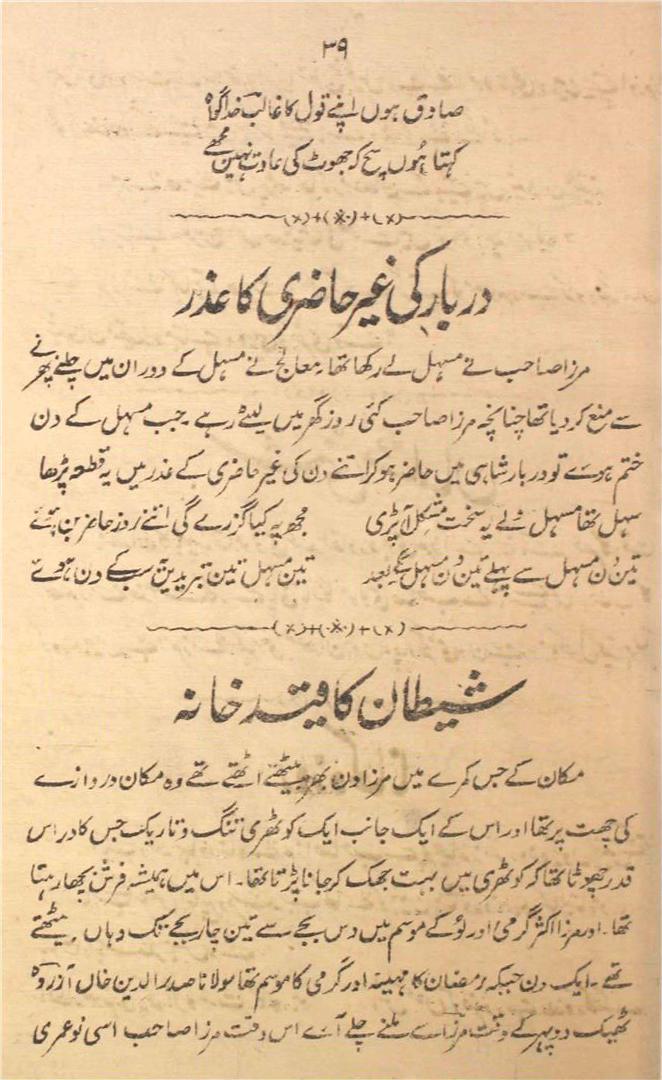 ۳۹
صادق ہوں اپنے قول کا غالب خدا گواہ
کہتا ہوں سچ کہ جھوٹ کی عادت نہیں مجھے
دربار کی غیر حاضری کا عذر
مرزا صاحب نے مسہل لے رکھا تھا۔ معالج نے مسہل کے دوران میں چلنے پھرنے
سے منع کر دیا تھا چنانچہ مرزا صاحب کئی روز گھر میں لیٹے رہے۔ جب مسہل کے دن
ختم ہوے تو دربار شاہی میں حاضر ہو کر اتنے دن کی غیر حاضری کے عذر میں یہ قطعہ پڑھا
سہل تھا مسہل ولے یہ سخت مشکل آپڑی مجھ پہ کیا گزرے گی اتنے روز حاضر بن ہوئے
تین دن مسہل سے پہلے تین دن مسہل کے بعد تین مسہل تین تبریدیں یہ سب کے دن ہوے
شیطان کا قید خانہ
مکان کے جس کمرے میں مرزا دن بھر بیٹھتے اٹھتے تھے وہ مکان دروازے
کی چھت پر تھا اور اس کے ایک جانب ایک کوٹھری تنگ و تاریک جس کا در اس
قدر چھوٹا تھا کہ کوٹھری میں بہت جھک کر جانا پڑتا تھا۔ اس میں ہمیشہ فرش بچھا رہتا
تھا۔ اور مرزا اکثر گرمی اور لو کے موسم میں دس بجے سے تین چار بجے تک وہاں بیٹھتے
تھے۔ ایک دن جبکہ رمضان کا مہینہ اور گرمی کا موسم تھا مولانا صدر الدین خاں آزردہ
ٹھیک دوپہر کے وقت مرزا سے ملنے چلے آے اس وقت مرزا صاحب اسی